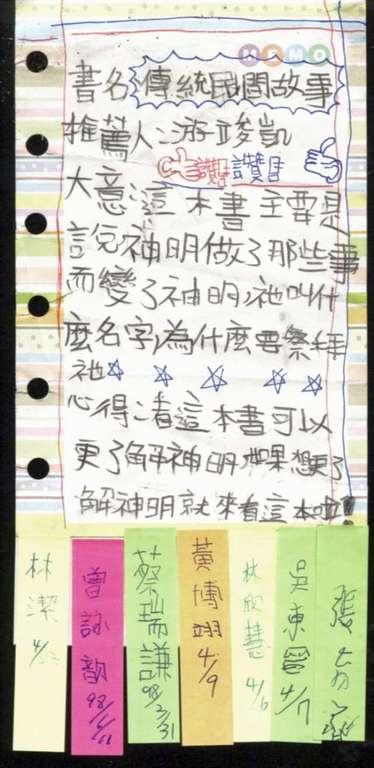 MOMO
書名:傳統民間故事
推薦人:游竣凱
讚 讚
大意:這本書主要是
說神明做了那些事
而變了神明,祂叫什
麼名字,為什麼要祭拜
祂
心得:看這本書可以
更了解神明,如果想更了
解神明就來看這本啦!
林潔 4/
曾詠歆 98/
蔡瑞謙 98/3/31
黃博翊 4/9
林欣慧 4/6
吳東 4/7
張